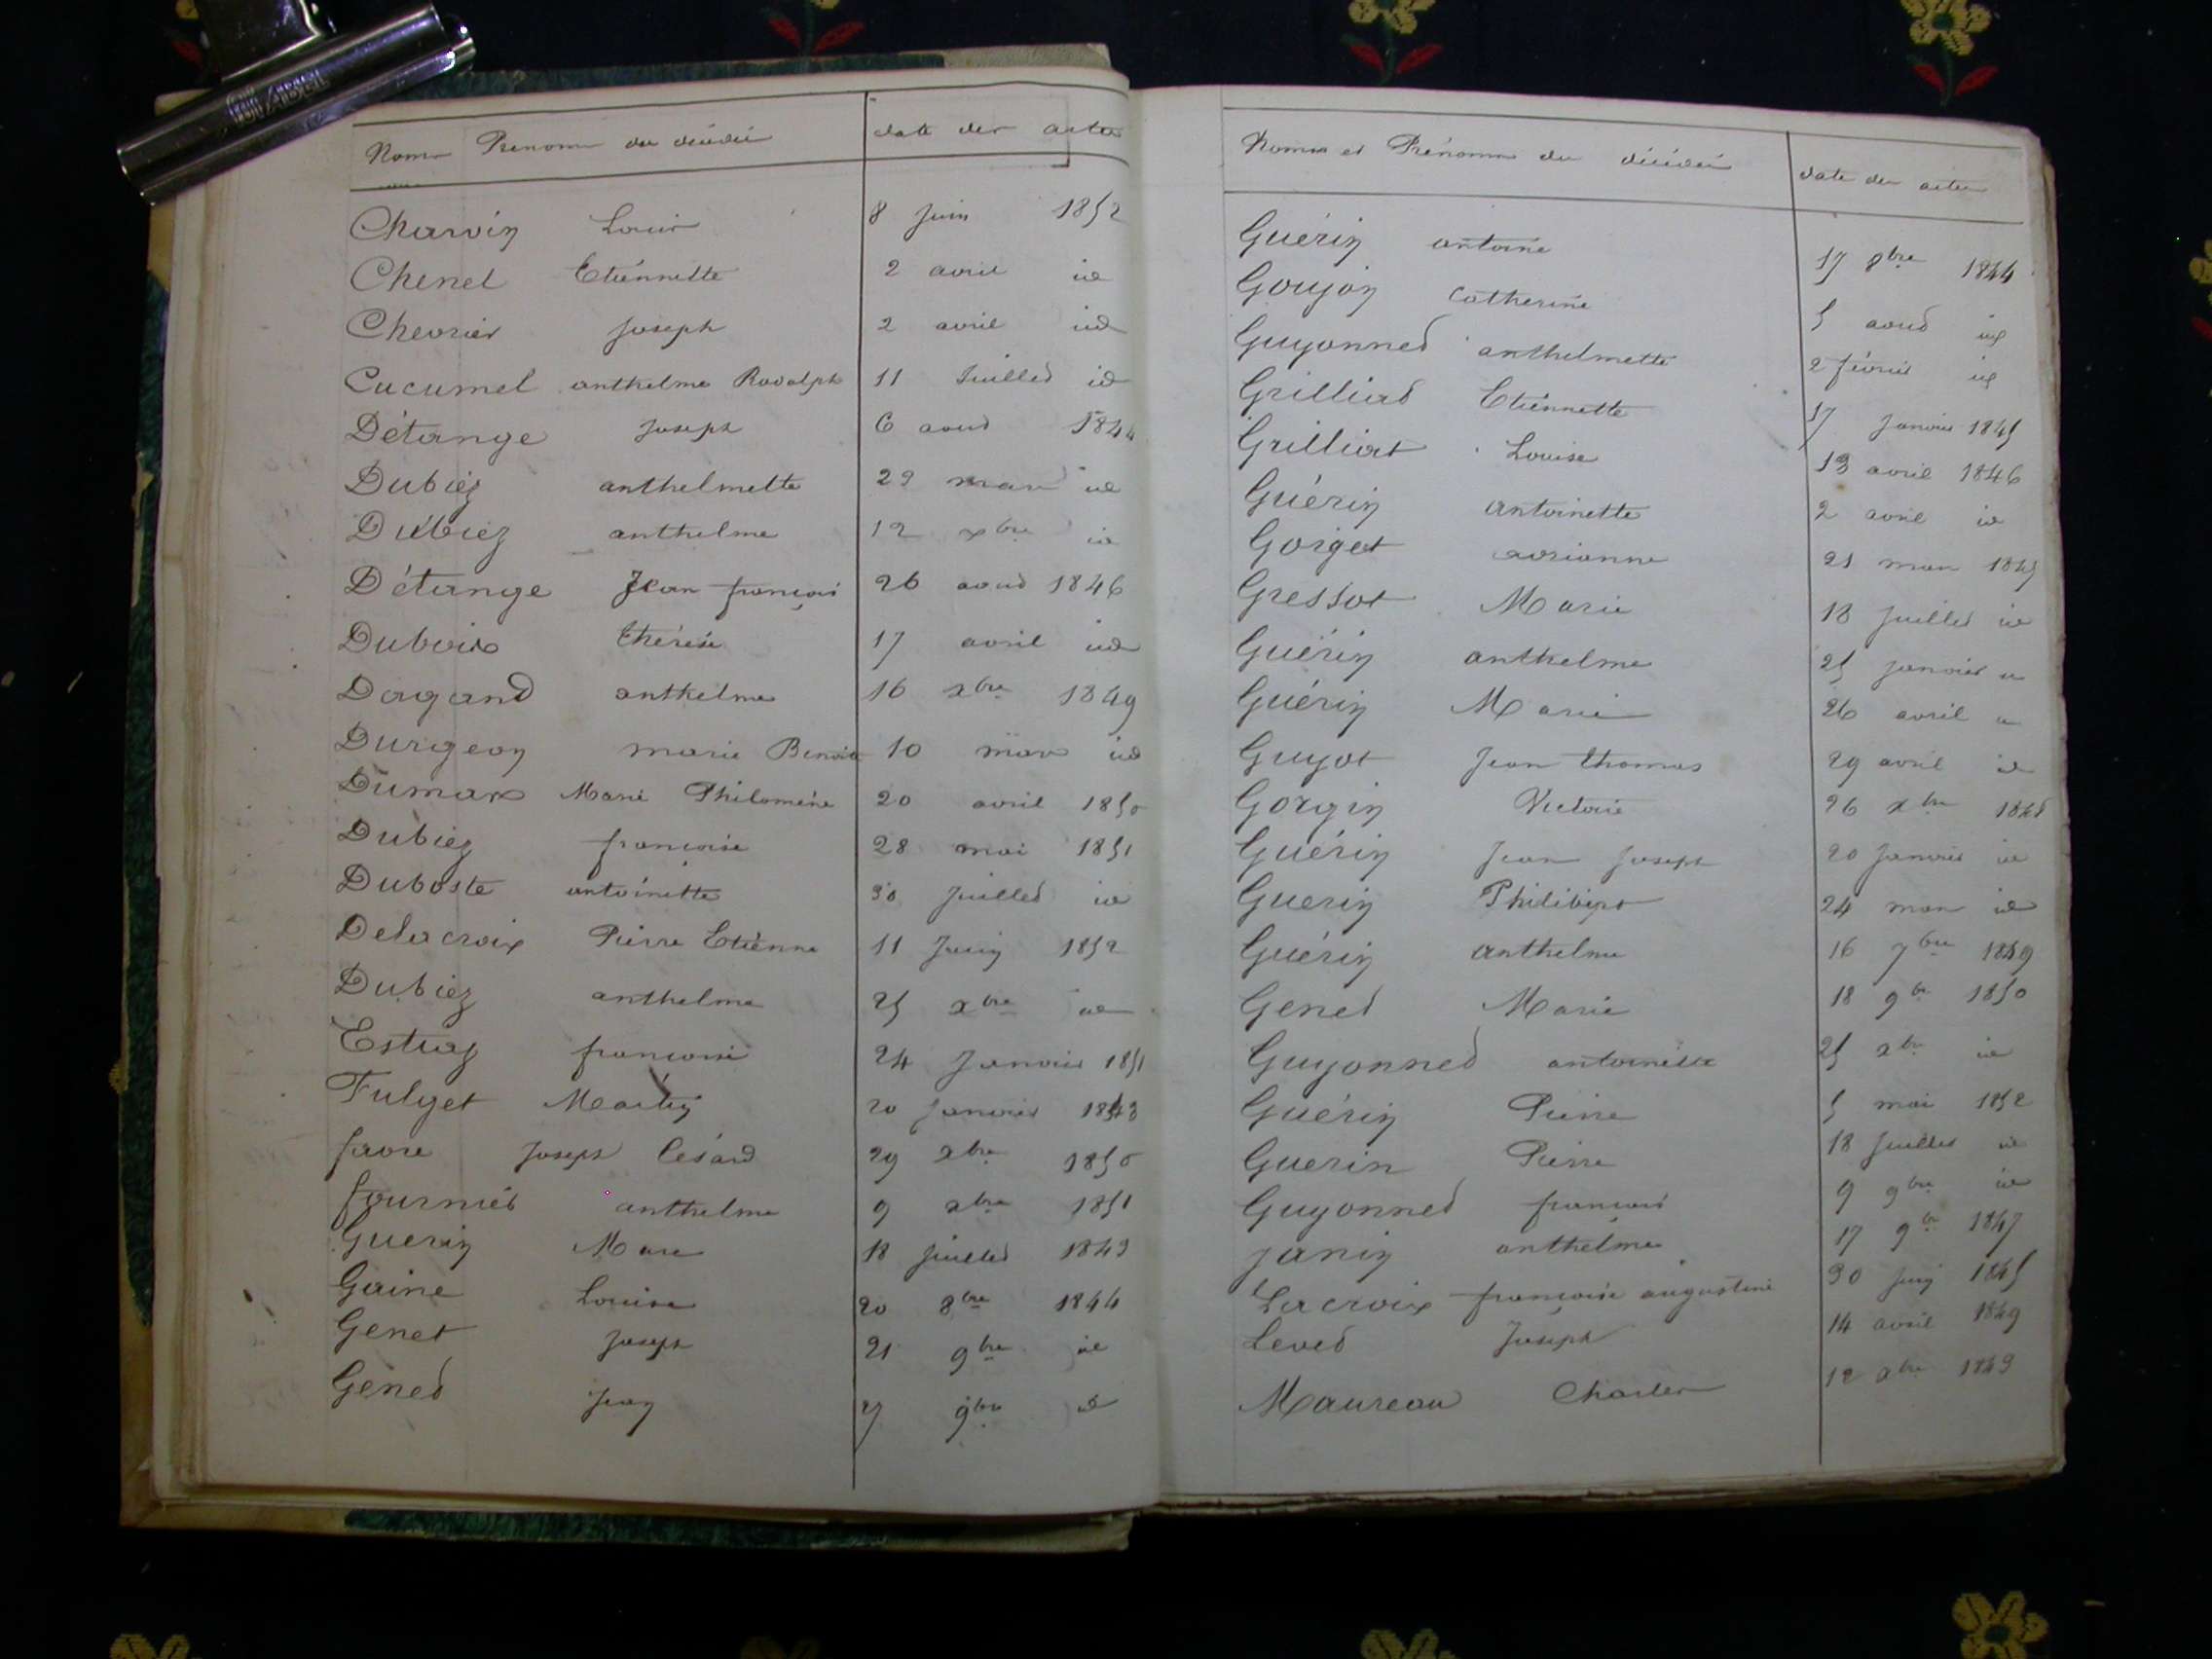 Noms Prénoms du décédé date des actes
Charvin Louis 8 Juin 1852
Chenel Etiennette 2 avril id
Chevrier Joseph 2 avril id
Cucumel anthelme Rodolph 11 Juillet id
Détange Joseph 6 aout 1844
Dubiez anthelmette 29 mars id
Dubiez anthelme 12 xbre id
Détange Jean françois 26 aout 1846
Dubois thérèse 17 avril id
Dagand anthelme 16 xbre 1849
Durgeon marie Benoite 10 mars id
Dumas Marie Philomène 20 avril 1850
Dubiez françoise 28 mai 1851
Duboste antoinette 30 Juillet id
Delacroix Pierre Etienne 11 Juin 1852
Dubiez anthelme 25 xbre id
Estraz françoise 24 Janvier 1851
Fulget Martin 20 Janvier 1843
favre Joseph Césard 29 xbre 1850
fournier anthelme 9 xbre 1851
Guerin Marc 18 Juillet 1843
Gaine Louise 20 8bre 1844
Genet Joseph 21 9bre id
Genet Jean 27 9bre id
Noms et Prénoms du décédé date des actes
Guérin antoine 17 8bre 1844
Goujon Catherine 5 aout id
Guyonnet anthelmette 2 février id
Grilliat Etiennette 17 Janvier 1845
Grilliat Louise 13 avril 1846
Guérin antoinette 2 avril id
Gorget adrianne 21 mars 1847
Gressot Marie 18 Juillet id
Guérin anthelme 25 Janvier id
Guérin Marie 26 avril id
Guyot Jean thomas 29 avril id
Gorgin Victoire 26 xbre 1848
Guérin Jean Joseph 20 Janvier id
Guerin Philibert 24 mars id
Guérin anthelme 16 7bre 1849
Genet Marie 18 9bre 1850
Guyonnet antoinette 25 xbre id
Guérin Pierre 5 mai 1852
Guerin Pierre 18 Juillet id
Guyonnet françois 9 9bre id
Janin anthelme 17 9bre 1847
Lacroix françoise augustine 30 Juin 1845
Levet Joseph 14 avril 1849
Maureau Charles 12 xbre 1843